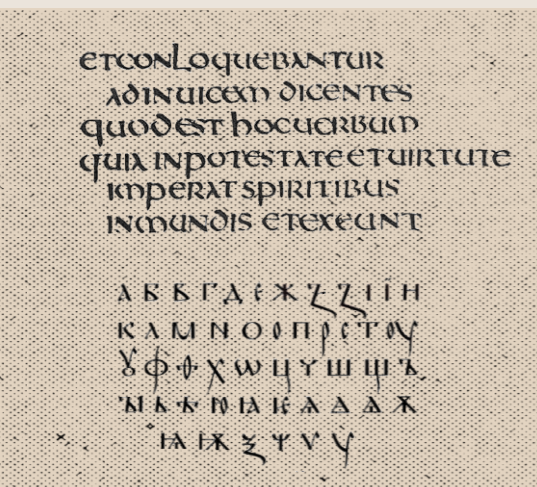 etconloquebantur
adinuicem dicentes
quodest hocuerbum
quia inpotestate etuirtute
imperat spiritibus
inmundis etexeunt
А Б В Г Д Є Ж Ꙁ Ꙁ І Ї Н
К Л М N О П Р С Т ОУ
Ꙋ Ф Х Ѡ Ц Ч Ш Щ Ъ
ЪІ Ь Ѣ Ю ІА Ѥ Ѧ Ѫ
Ѩ Ѭ Ѯ Ѱ Ѵ Ѵ